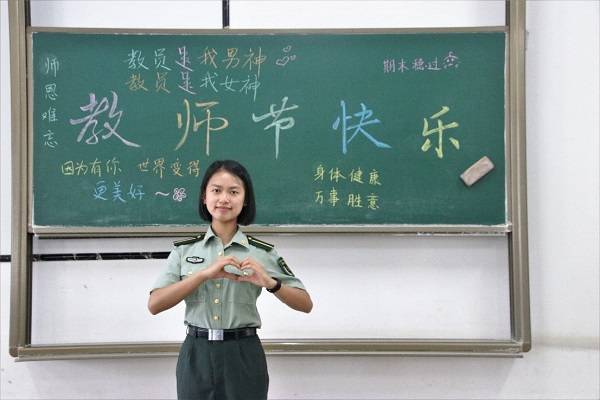 师恩难忘
教员是我男神
教员是我女神
期末稳过
教师节快乐
因为有你 世界变得
更美好~
身体健康
万事胜意